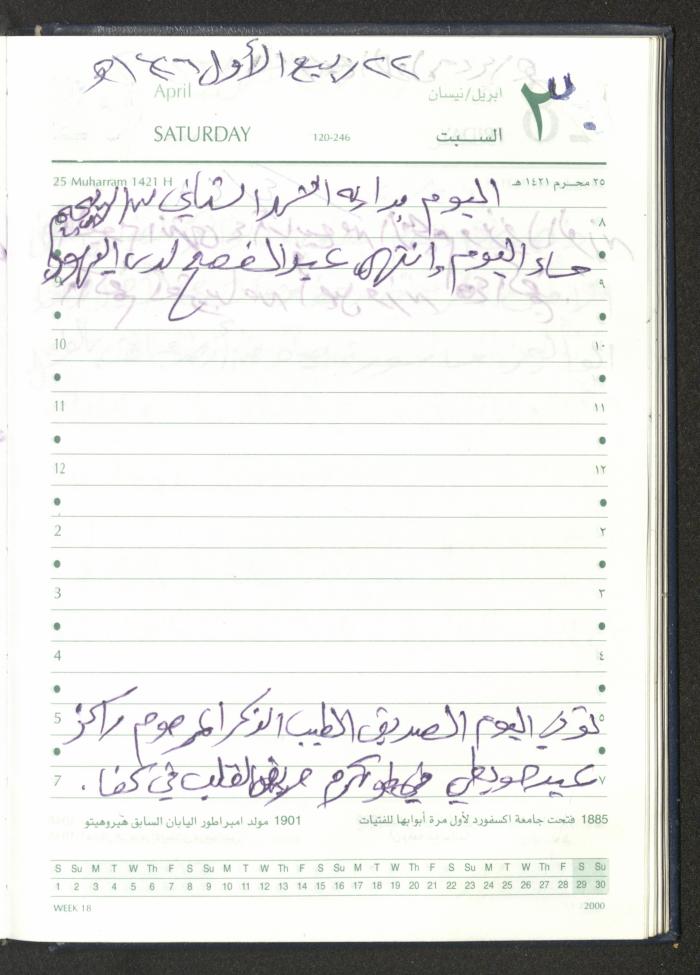 ٢٢ ربيع الأول ١٤٢٦هـ
April
ابريل/نيسان
٣٠
SATURDAY
120-246
السبت
25 Muharram 1421 H
٢٥ محرم ١٤٢١ هـ
اليوم بداية الشهر الثاني
٨
اليوم وانتهى عيد الفصح لدى اليهود
9
٩
10
١٠
11
١١
12
١٢
2
٢
3
٣
4
٤
توفي اليوم الصديق الطيب الذكر المرحوم
5
٥
عيد في طولكرم القلب في كفا.
7
٧
1885 فتحت جامعة اكسفورد لأول مرة أبوابها للفتيات
1901 مولد امبراطور اليابان السابق هيروهيتو
S Su M T W Th F S Su M T W Th F S Su M T W Th F S Su M T W Th F S Su
1 2 3 4 5 6 7 8 9 10 11 12 13 14 15 16 17 18 19 20 21 22 23 24 25 26 27 28 29 30
WEEK 18
2000